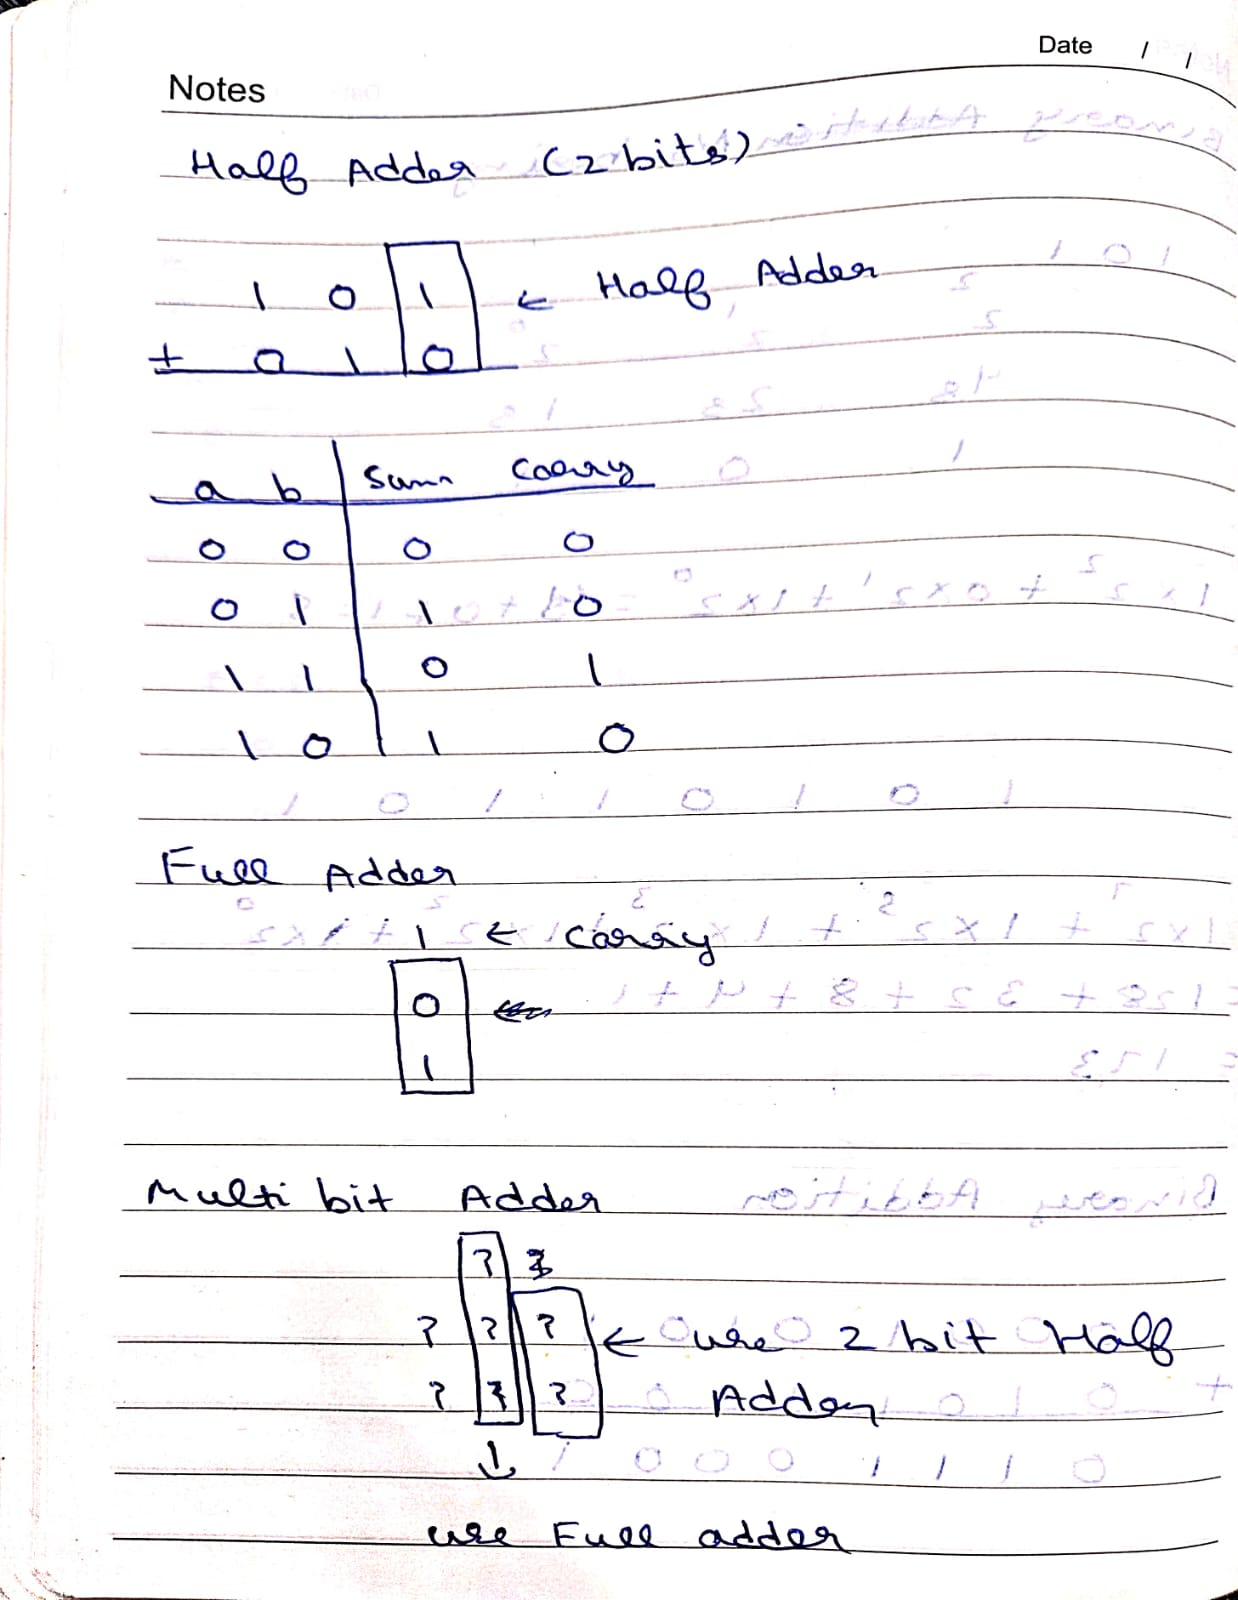 Date / /
Notes
Half Adder (2 bits)
1 0 1 ← Half Adder
+ 0 1 0
a b Sum Carry
0 0 0 0
0 1 1 0
1 1 0 1
1 0 1 0
Full Adder
1 ← Carry
0 ←
1
Multi bit Adder
? ?
? ? ? ← use 2 bit Half
? ? ? Adder
↓
use Full adder